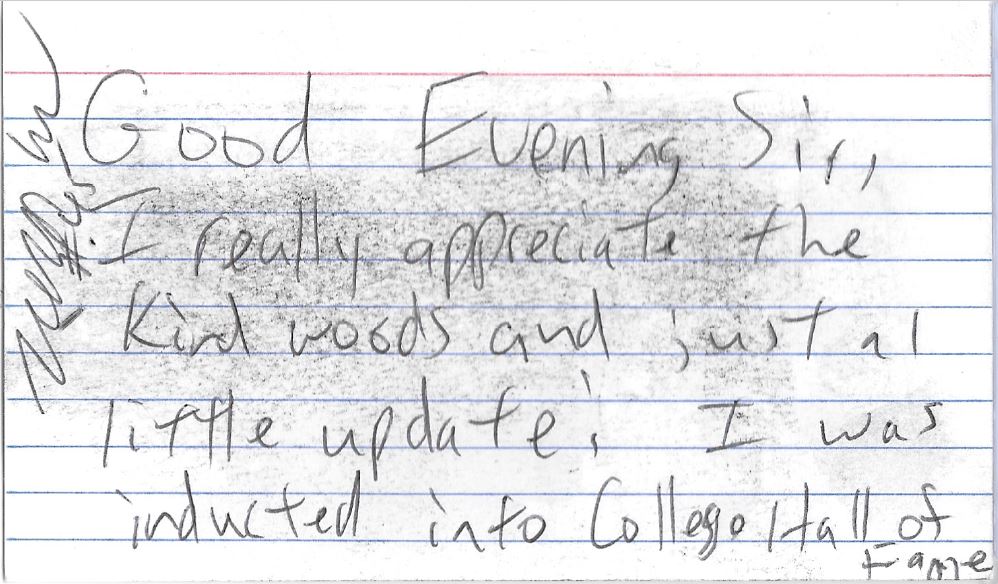 Good Evening Sir,
I really appreciate the
Kind woods and just a
little update! I was
inducted into College Hall of
Fame